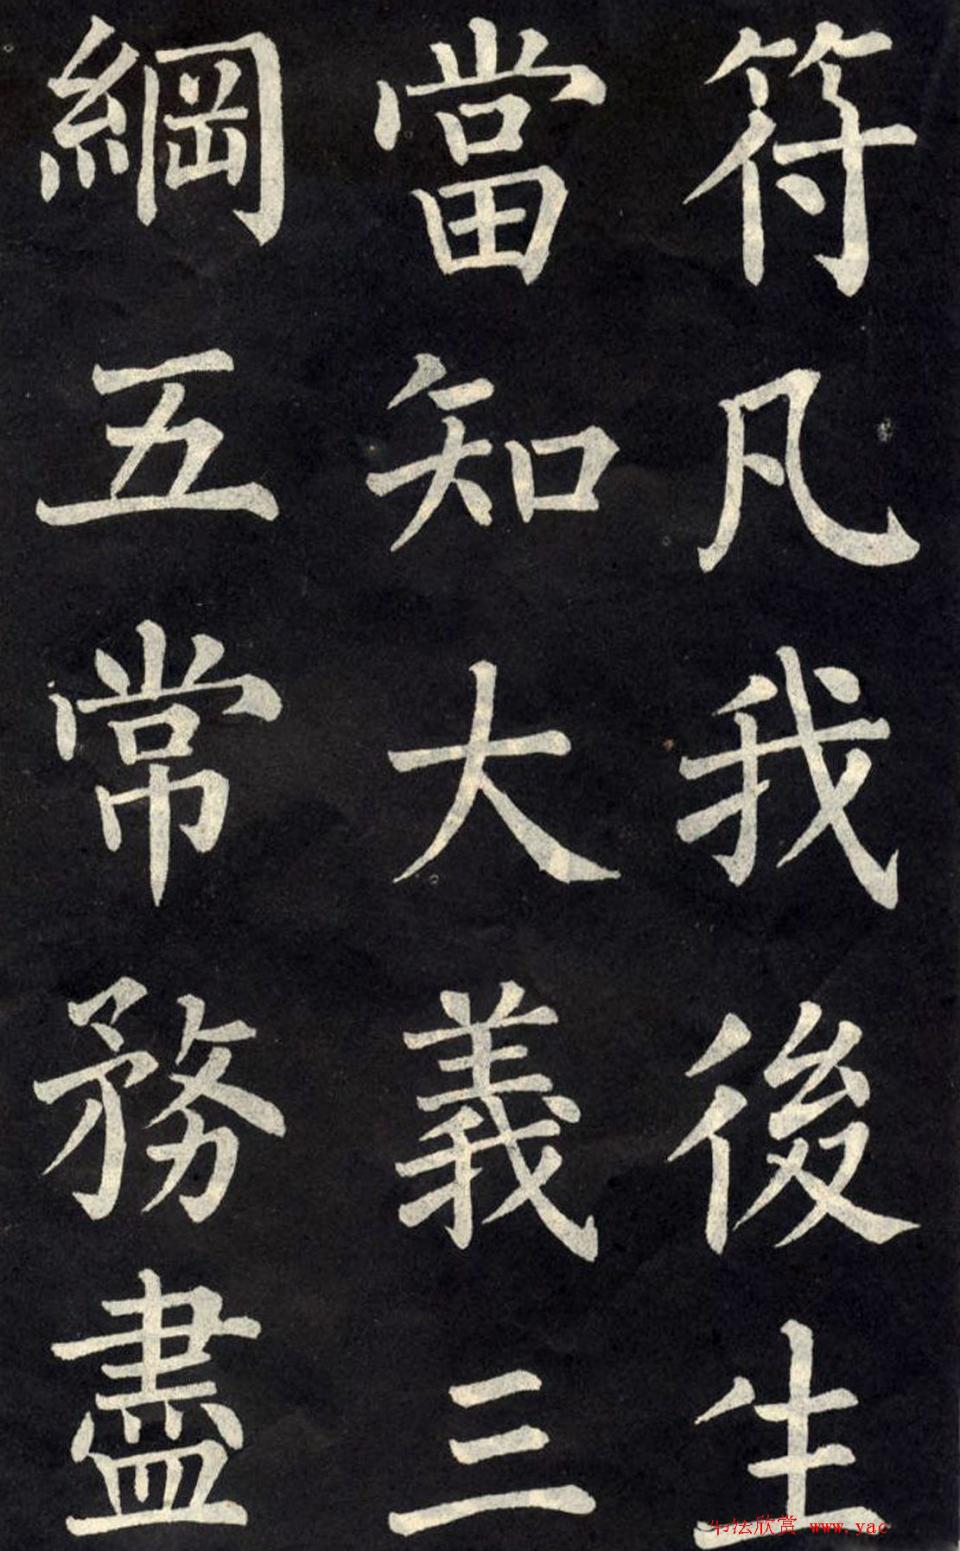 符凡我後生
當知大義三
綱五常務盡
书法欣赏 www.yac